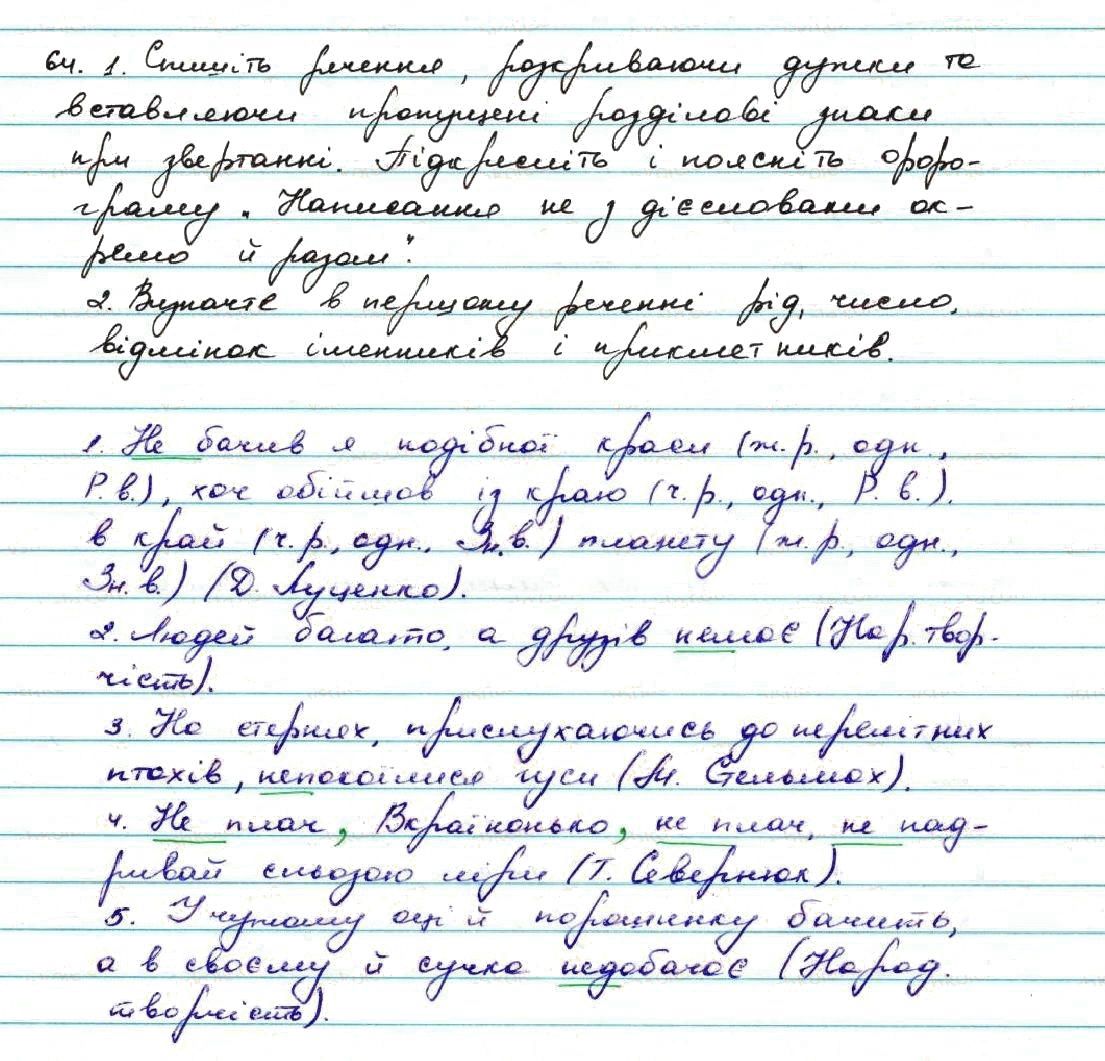 64. 1. Спишіть речення, розкриваючи дужки та
вставляючи пропущені розділові знаки
при звертанні. Підкресліть і поясніть орфо-
граму „Написання не з дієсловами ок-
ремо й разом".
2. Визначте в першому реченні рід, число,
відмінок іменників і прикметників.
1. Не бачив я подібної краси (ж. р., одн.,
Р. в.), хоч обіймав із краю (ч. р., одн., Р. в.).
в край (ч. р., одн., Зн. в.) планету (ж. р., одн.,
Зн. в.) (Д. Луценко).
2. Людей багато, а друзів немає (Нар. твор-
чість).
3. На стернях, прислухаючись до перелітних
птахів, непокоїлися гуси (М. Стельмах).
4. Не плач, Вкраїнонько, не плач, не над-
ривай сльозою ліри (Т. Севернюк).
5. У чужому оці й порошинку бачить,
а в своєму й сучка недобачає (Народ.
творчість).